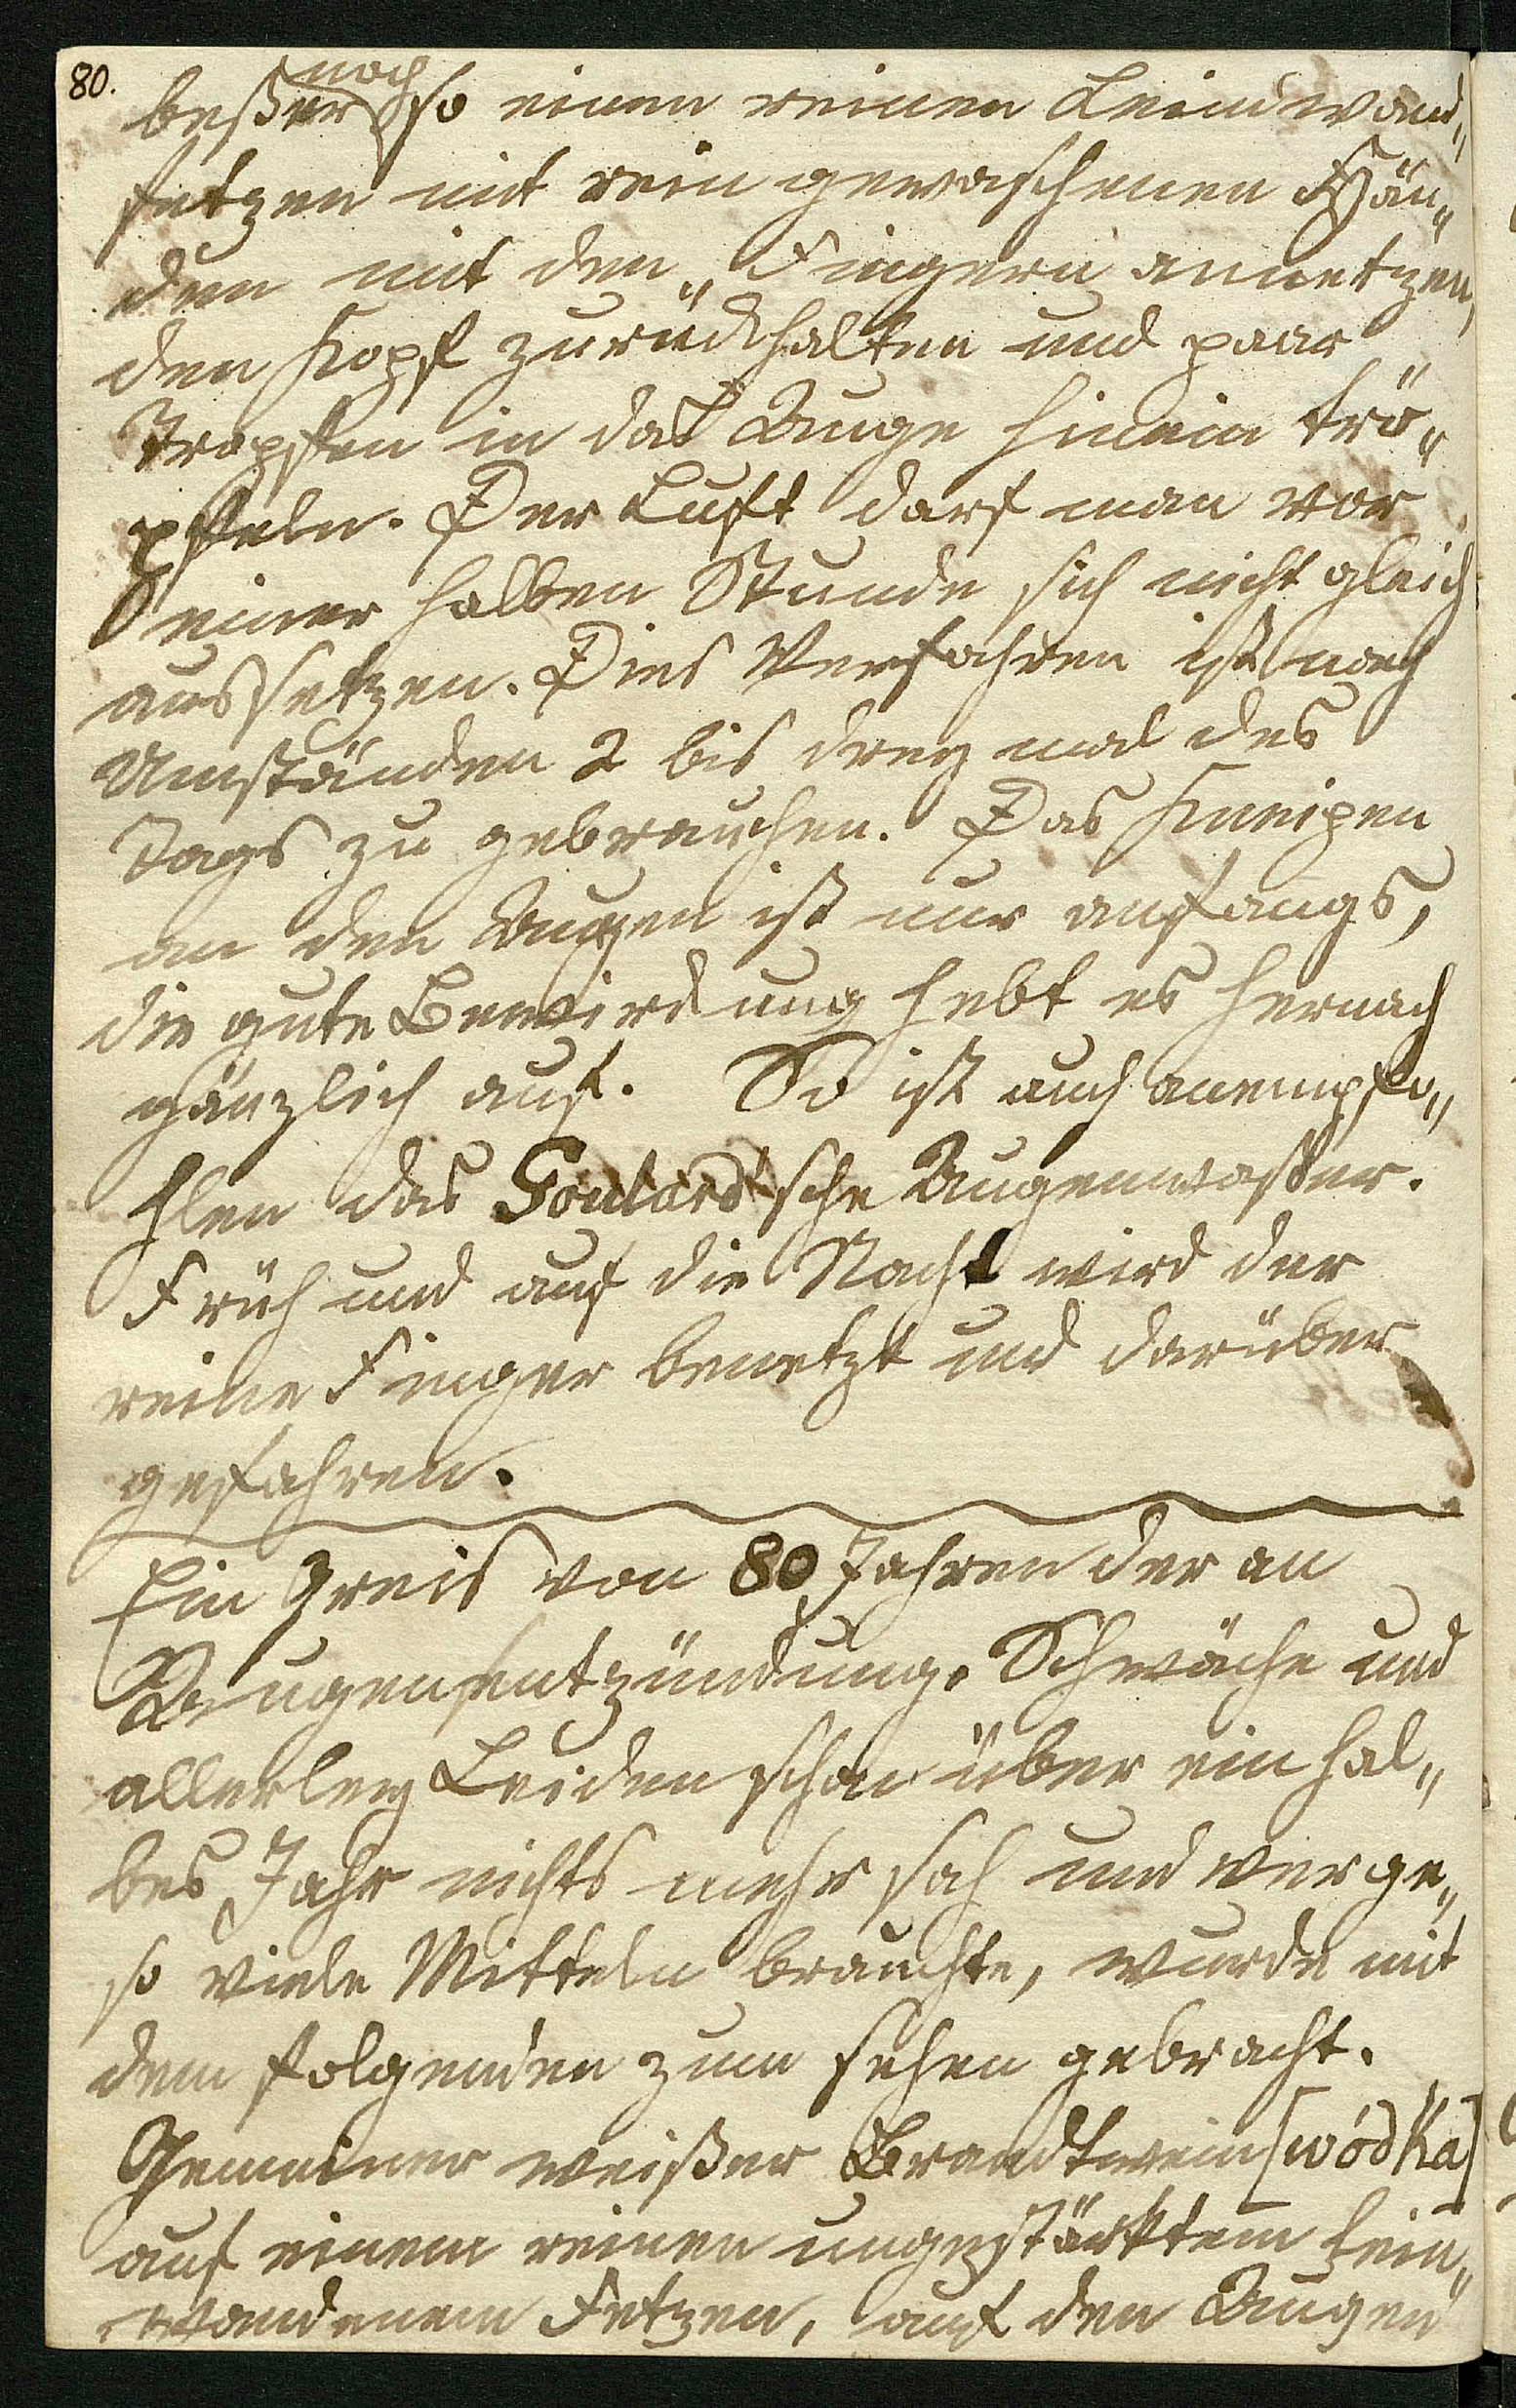 80.
noch
beßer so einen reinen Leinwand„
fetzen mit rein gewaschenen Hän„
den mit den „ Fingern annetzen,
den Kopf zurückhalten und paar
Tropfen in das Auge hinein trö„
pfeln. Der Luft darf man vor
einer halben Stunde sich nicht gleich
aussetzen. Dies Verfahren ist nach
Umständen 2 bis drey mal des
Tags zu gebrauchen. Das Kneipen
an den Augen ist nur anfangs,
die gute Bewirkung hebt es hernach
gänzlich auf. So ist auch anempfo„
hlen das Goulard'sche Augenwaßer.
Früh und auf die Nacht wird der
reine Finger benetzt und darüber
gefahren.
Ein Greis von 80 Jahren der an
Augenentzündung, Schwäche und
allerley Leiden schon über ein hal„
bes Jahr nichts mehr sah und verge„
so viele Mitteln brauchte, wurde mit
dem folgenden zum sehen gebracht.
Gemeiner weißer Brandtwein [wódka]
auf einem reinen ungestärktem lein„
wandenem Fetzen, auf den Augen